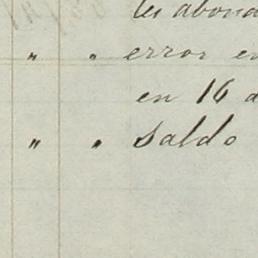 les abona
" " error en
en 16 d
" " Saldo